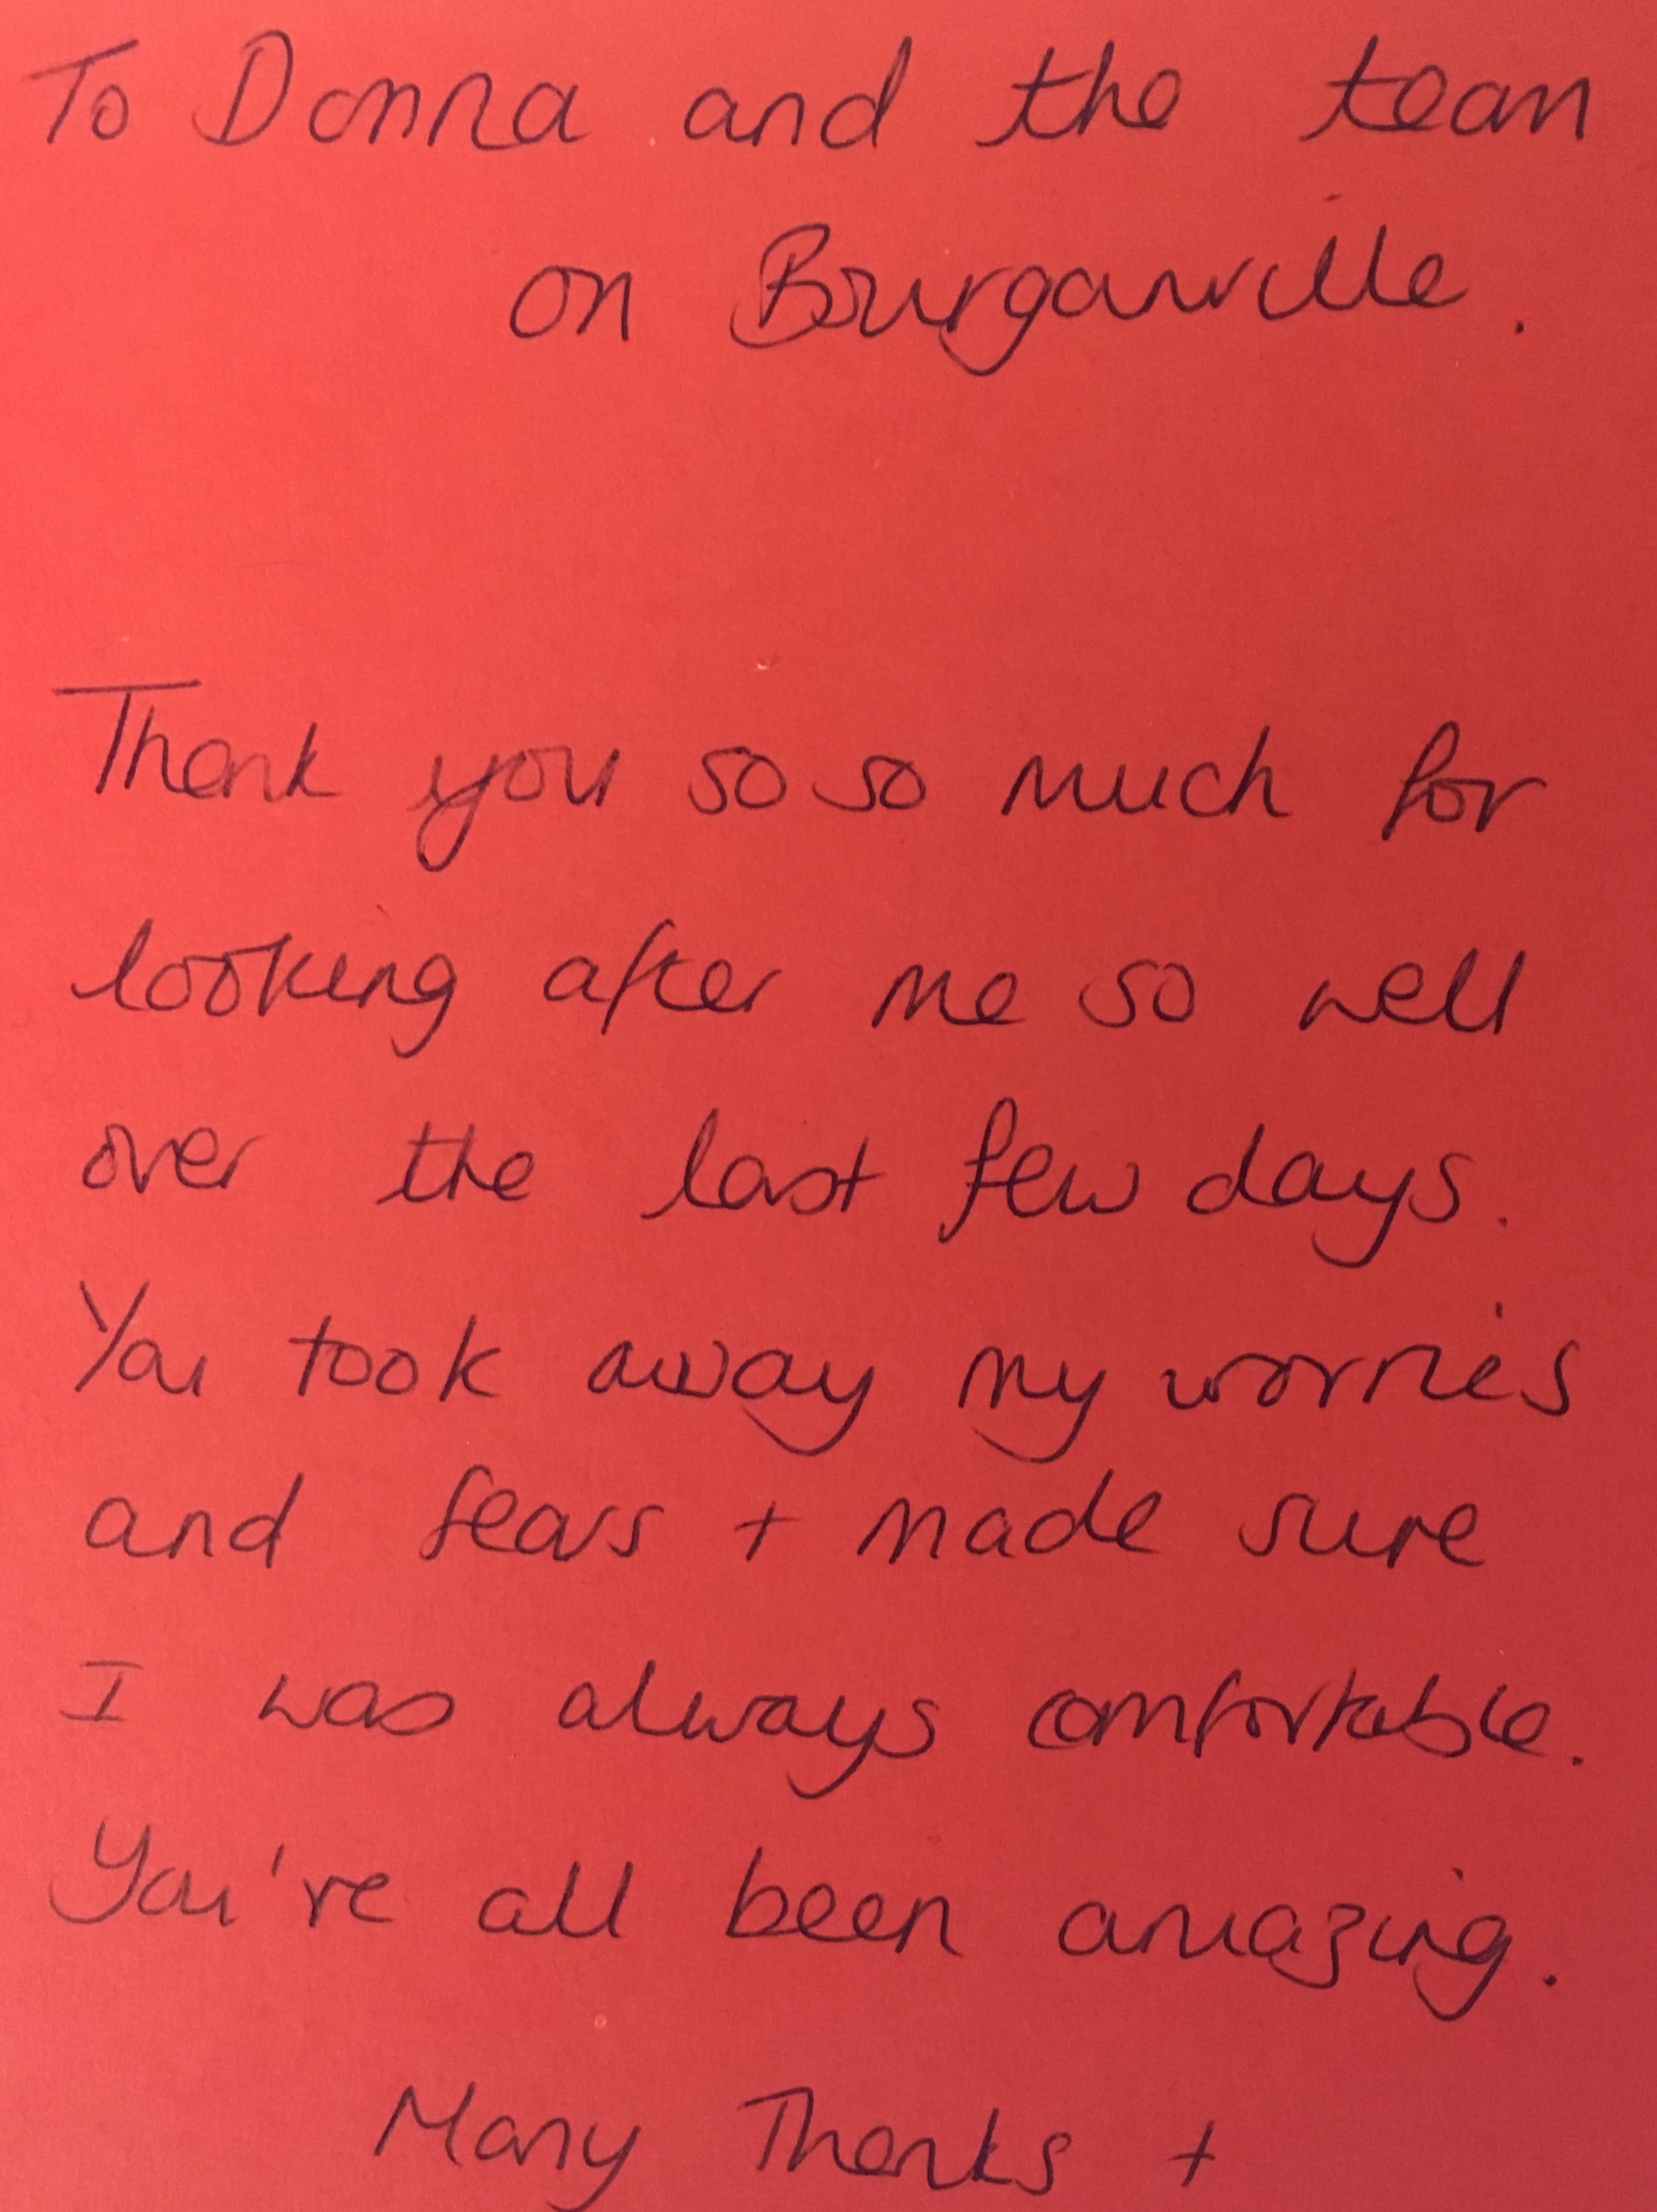 To Donna and the team
on Bourganville.
Thank you so so much for
looking after me so well
over the last few days.
You took away my worries
and fears + made sure
I was always comfortable.
You're all been amazing.
Many Thanks +